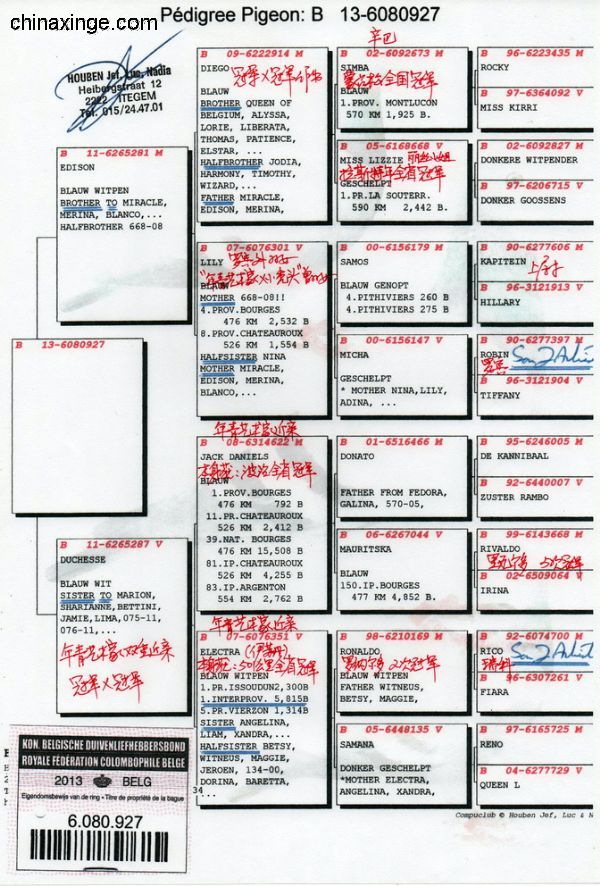 chinaxinge.com
Pédigree Pigeon: B 13-6080927
HOUBEN Jef, Luc, Nadia
Heibergstraat 12
2222 ITEGEM
Tel. 015/24.47.01
B 13-6080927
B 11-6265281 M
EDISON
BLAUW WITPEN
BROTHER TO MIRACLE,
MERINA, BLANCO,...
HALFBROTHER 668-08
B 11-6265287 V
DUCHESSE
BLAUW WIT
SISTER TO MARION,
SHARIANNE,BETTINI,
JAMIE,LIMA,075-11,
076-11,...
年青艺术家双重近亲
冠军X冠军
B 09-6222914 M
DIEGO
冠军X冠军
BLAUW
BROTHER QUEEN OF
BELGIUM, ALYSSA,
LORIE, LIBERATA,
THOMAS, PATIENCE,
ELSTAR, ...
HALFBROTHER JODIA,
HARMONY, TIMOTHY,
WIZARD,...
FATHER MIRACLE,
EDISON, MERINA,
B 07-6076301 V
LILY
BLAUW
MOTHER 668-08!!
4.PROV.BOURGES
476 KM 2,532 B
8.PROV.CHATEAUROUX
526 KM 1,554 B
HALFSISTER NINA
MOTHER MIRACLE,
EDISON, MERINA,
BLANCO,...
年青艺术家近亲
B 08-6314622 M
JACK DANIELS
BLAUW
1.PROV.BOURGES
476 KM 792 B
11.PR.CHATEAUROUX
526 KM 2,412 B
39.NAT. BOURGES
476 KM 15,508 B
81.IP.CHATEAUROUX
526 KM 4,255 B
83.IP.ARGENTON
554 KM 2,762 B
年青艺术家近亲
B 07-6076351 V
ELECTRA
BLAUW WITPEN
1.PR.ISSOUDUN2,300B
1.INTERPROV. 5,815B
5.PR.VIERZON 1,314B
SISTER ANGELINA,
LIAM, XANDRA,...
HALFSISTER BETSY,
WITNEUS, MAGGIE,
JEROEN, 134-00,
DORINA, BARETTA,
34 ...
辛巴
B 02-6092673 M
SIMBA
BLAUW
1.PROV. MONTLUCON
570 KM 1,925 B.
B 05-6168668 V
MISS LIZZIE
GESCHELPT
1.PR.LA SOUTERR.
590 KM 2,442 B.
B 00-6156179 M
SAMOS
BLAUW GENOPT
4.PITHIVIERS 260 B
4.PITHIVIERS 275 B
B 00-6156147 V
MICHA
GESCHELPT
* MOTHER NINA,LILY,
ADINA, ...
B 01-6516466 M
DONATO
FATHER FROM FEDORA,
GALINA, 570-05,
B 06-6267044 V
MAURITSKA
BLAUW
150.IP.BOURGES
477 KM 4,852 B.
B 98-6210169 M
RONALDO
BLAUW WITPEN
FATHER WITNEUS,
BETSY, MAGGIE,
B 05-6448135 V
SAMANA
DONKER GESCHELPT
*MOTHER ELECTRA,
ANGELINA, XANDRA,
B 96-6223435 M
ROCKY
B 97-6364092 V
MISS KIRRI
B 02-6092827 M
DONKERE WITPENDER
B 97-6206715 V
DONKER GOOSSENS
B 90-6277606 M
KAPITEIN
B 96-3121913 V
HILLARY
B 90-6277397 M
ROBIN
B 96-3121904 V
TIFFANY
B 95-6246005 M
DE KANNIBAAL
B 92-6440007 V
ZUSTER RAMBO
B 99-6143668 M
RIVALDO
B 02-6509064 V
IRINA
B 92-6074700 M
RICO
瑞科
B 96-6377261 V
FIARA
B 97-6165725 M
RENO
B 04-6277729 V
QUEEN L
Compuclub © Houben Jef, Luc & N
KON. BELGISCHE DUIVENLIEFHEBBERSBOND
ROYALE FÉDÉRATION COLOMBOPHILE BELGE
2013 BELG
Eigendomsbewijs van de ring • Titre de propriété de la bague
6.080.927